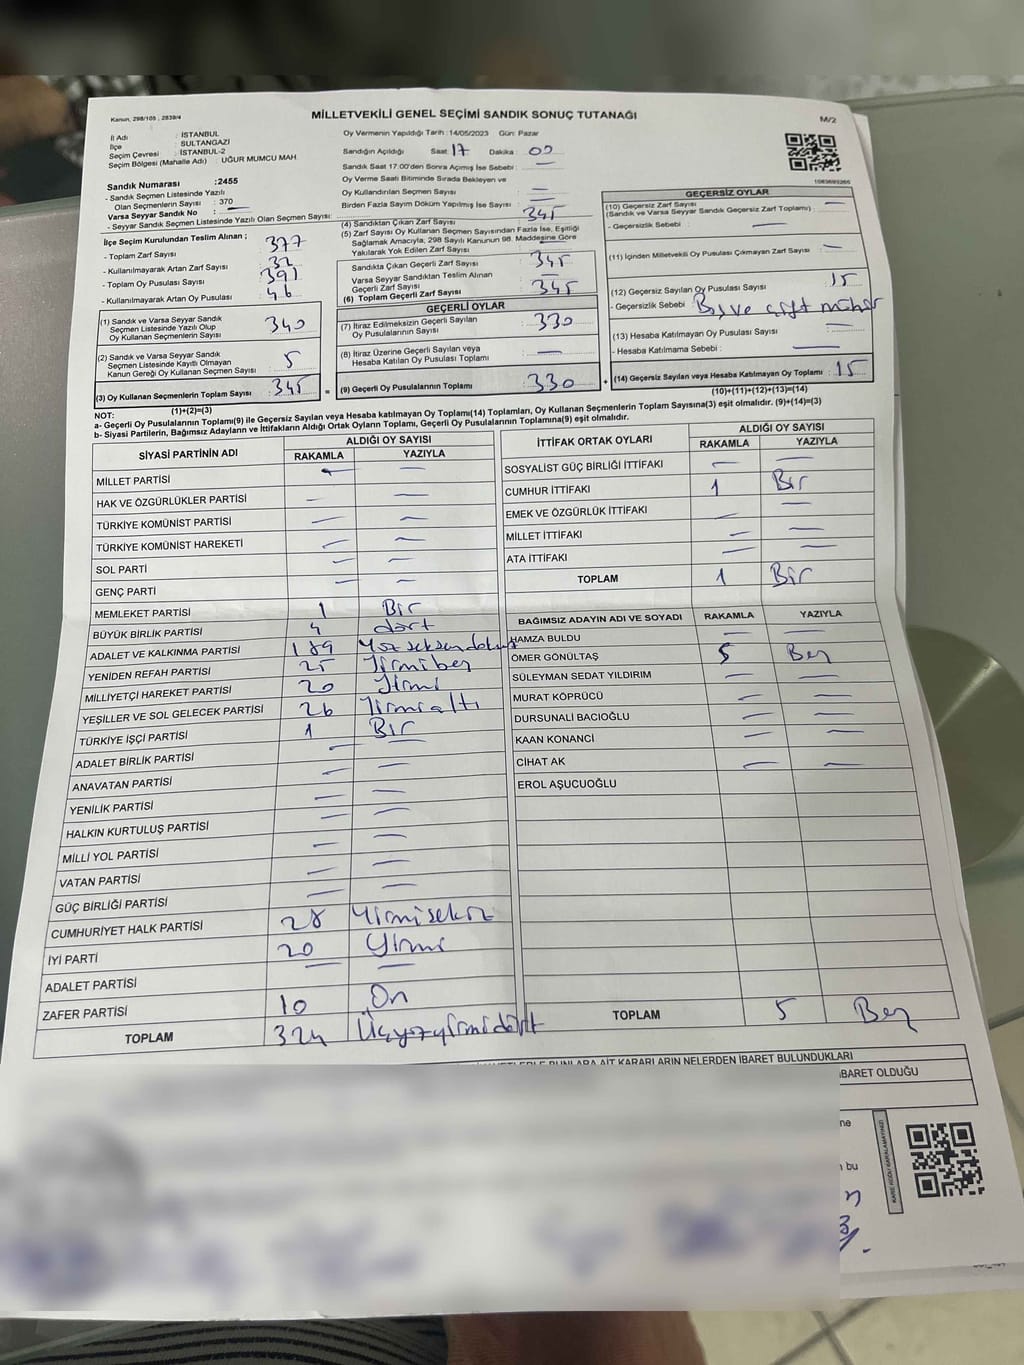 Kanun, 298/105 , 2839/4
MİLLETVEKİLİ GENEL SEÇİMİ SANDIK SONUÇ TUTANAĞI
M/2
İl Adı : İSTANBUL
İlçe : SULTANGAZİ
Seçim Çevresi : İSTANBUL-2
Seçim Bölgesi (Mahalle Adı) : UĞUR MUMCU MAH
Oy Vermenin Yapıldığı Tarih : 14/05/2023 Gün: Pazar
Sandığın Açıldığı Saat 17 Dakika : 00
Sandık Saat 17.00'den Sonra Açılmış İse Sebebi : —
Oy Verme Saati Bitiminde Sırada Bekleyen ve
Oy Kullandırılan Seçmen Sayısı —
Birden Fazla Sayım Döküm Yapılmış İse Sayısı : —
Sandık Numarası :2455
- Sandık Seçmen Listesinde Yazılı
Olan Seçmenlerin Sayısı : 370
Varsa Seyyar Sandık No : —
- Seyyar Seçmen Listesinde Yazılı Olan Seçmen Sayısı:
İlçe Seçim Kurulundan Teslim Alınan ;
- Toplam Zarf Sayısı : 377
- Kullanılmayarak Artan Zarf Sayısı : 32
- Toplam Oy Pusulası Sayısı : 391
- Kullanılmayarak Artan Oy Pusulası : 46
(1) Sandık ve Varsa Seyyar Sandık
Seçmen Listesinde Yazılı Olup
Oy Kullanan Seçmenlerin Sayısı : 340
(2) Sandık ve Varsa Seyyar Sandık
Seçmen Listesinde Kayıtlı Olmayan
Kanun Gereği Oy Kullanan Seçmen Sayısı : 5
(3) Oy Kullanan Seçmenlerin Toplam Sayısı : 345
(1)+(2)=(3)
(4) Sandıktan Çıkan Zarf Sayısı : 345
(5) Zarf Sayısı Oy Kullanan Seçmen Sayısından Fazla İse, Eşitliği
Sağlamak Amacıyla, 298 Sayılı Kanunun 98. Maddesine Göre
Yakılarak Yok Edilen Zarf Sayısı :
Sandıkta Çıkan Geçerli Zarf Sayısı : 345
Varsa Seyyar Sandıktan Teslim Alınan
Geçerli Zarf Sayısı : —
(6) Toplam Geçerli Zarf Sayısı : 345
GEÇERLİ OYLAR
(7) İtiraz Edilmeksizin Geçerli Sayılan
Oy Pusulalarının Sayısı : 330
(8) İtiraz Üzerine Geçerli Sayılan veya
Hesaba Katılan Oy Pusulası Toplamı : —
= (9) Geçerli Oy Pusulalarının Toplamı : 330
1083693265
GEÇERSİZ OYLAR
(10) Geçersiz Zarf Sayısı
(Sandık ve Varsa Seyyar Sandık Geçersiz Zarf Toplamı) : —
- Geçersizlik Sebebi : —
(11) İçinden Milletvekili Oy Pusulası Çıkmayan Zarf Sayısı : —
(12) Geçersiz Sayılan Oy Pusulası Sayısı : 15
- Geçersizlik Sebebi : Boş ve çift mühür
(13) Hesaba Katılmayan Oy Pusulası Sayısı : —
- Hesaba Katılmama Sebebi : —
+ (14) Geçersiz Sayılan veya Hesaba Katılmayan Oy Toplamı : 15
(10)+(11)+(12)+(13)=(14)
NOT:
a- Geçerli Oy Pusulalarının Toplamı(9) ile Geçersiz Sayılan veya Hesaba katılmayan Oy Toplamı(14) Toplamları, Oy Kullanan Seçmenlerin Toplam Sayısına(3) eşit olmalıdır. (9)+(14)=(3)
b- Siyasi Partilerin, Bağımsız Adayların ve İttifakların Aldığı Ortak Oyların Toplamı, Geçerli Oy Pusulalarının Toplamına(9) eşit olmalıdır.
SİYASİ PARTİNİN ADI ALDIĞI OY SAYISI
RAKAMLA YAZIYLA
MİLLET PARTİSİ —
HAK VE ÖZGÜRLÜKLER PARTİSİ — —
TÜRKİYE KOMÜNİST PARTİSİ — —
TÜRKİYE KOMÜNİST HAREKETİ — —
SOL PARTİ — —
GENÇ PARTİ — —
MEMLEKET PARTİSİ 1 Bir
BÜYÜK BİRLİK PARTİSİ 4 dört
ADALET VE KALKINMA PARTİSİ 189 Yüz seksen dokuz
YENİDEN REFAH PARTİSİ 25 Yirmi beş
MİLLİYETÇİ HAREKET PARTİSİ 20 Yirmi
YEŞİLLER VE SOL GELECEK PARTİSİ 26 Yirmi altı
TÜRKİYE İŞÇİ PARTİSİ 1 Bir
ADALET BİRLİK PARTİSİ — —
ANAVATAN PARTİSİ — —
YENİLİK PARTİSİ — —
HALKIN KURTULUŞ PARTİSİ — —
MİLLİ YOL PARTİSİ — —
VATAN PARTİSİ — —
GÜÇ BİRLİĞİ PARTİSİ — —
CUMHURİYET HALK PARTİSİ 28 Yirmi sekiz
İYİ PARTİ 20 Yirmi
ADALET PARTİSİ — —
ZAFER PARTİSİ 10 On
TOPLAM 324 Üçyüzyirmidört
İTTİFAK ORTAK OYLARI ALDIĞI OY SAYISI
RAKAMLA YAZIYLA
SOSYALİST GÜÇ BİRLİĞİ İTTİFAKI — —
CUMHUR İTTİFAKI 1 Bir
EMEK VE ÖZGÜRLÜK İTTİFAKI — —
MİLLET İTTİFAKI — —
ATA İTTİFAKI — —
TOPLAM 1 Bir
BAĞIMSIZ ADAYIN ADI VE SOYADI RAKAMLA YAZIYLA
HAMZA BULDU — —
ÖMER GÖNÜLTAŞ 5 Beş
SÜLEYMAN SEDAT YILDIRIM — —
MURAT KÖPRÜCÜ — —
DURSUNALİ BACIOĞLU — —
KAAN KONANCİ — —
CİHAT AK — —
EROL AŞUCUOĞLU
TOPLAM 5 Beş
BUNLARA AİT KARARLARIN NELERDEN İBARET BULUNDUKLARI
İBARET OLDUĞU
ne
bu
KARE KODU KARALAMAYINIZ!